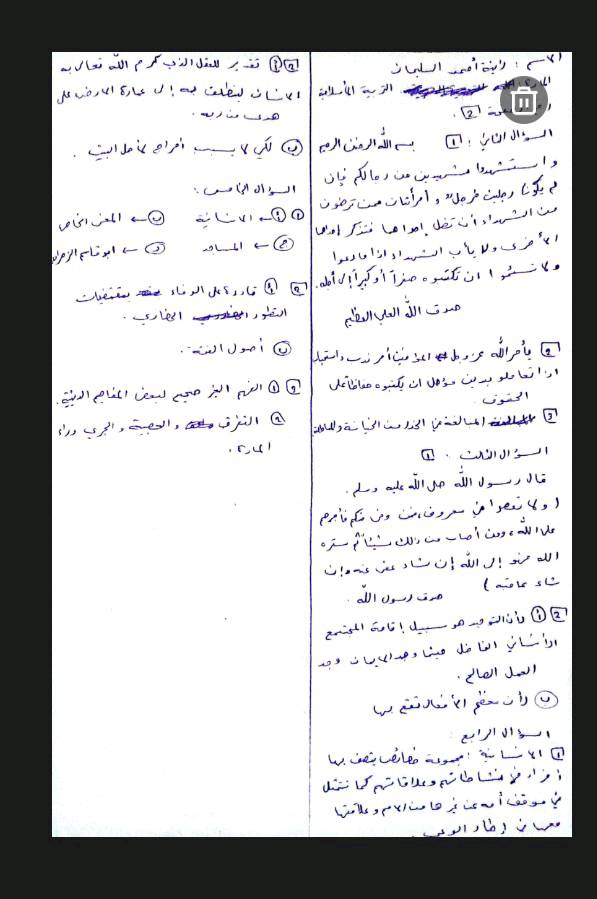 الاسم : رانية أحمد السليمان
المادة : التربية الإسلامية
2
السؤال الثاني : 1 بسم الله الرحمن الرحيم
واستشهدوا شهيدين من رجالكم فإن
لم يكونا رجلين فرجل وامرأتان ممن ترضون
من الشهداء أن تضل إحداهما فتذكر إحداهما
الأخرى ولا يأب الشهداء إذا ما دعوا
ولا تسئموا ان تكتبوه صغيراً أو كبيراً إلى أجله.
صدق الله العلي العظيم
2 يأمر الله عز وجل المؤمنين أمر ندب واستحباب
اذا تعاملو بدين مؤجل ان يكتبوه حفاظا على
الحقوق.
3 المبالغة في الحذر من الخيانة والمماطلة
السؤال الثالث : 1
قال رسول الله صلى الله عليه وسلم.
( ولا تعصوا في معروف، فمن وفى منكم فأجره
على الله، ومن أصاب من ذلك شيئاً ثم ستره
الله فهو إلى الله إن شاء عفى عنه وإن
شاء عاقبه ) صدق رسول الله.
2 أ لأن التوحيد هو سبيل إقامة المجتمع
الإنساني الفاضل حيثما وجد الإيمان وجد
العمل الصالح.
ب لأن معظم الأفعال تقع بها
السؤال الرابع :
1 الانسانية : مجموعة خصائص يتصف بها
أفراد في نشاطاتهم وعلاقاتهم كما تتمثل
في موقف أمة عن غيرها من الأمم وعلاقتها
معها في إطار الوعي.
2 أ تقدير للعقل الذي كرم الله تعالى به
الانسان لينطلق به إلى عمارة الارض على
هدى من ربه.
ب لكي لا يسبب أحراج لأهل البيت.
السؤال الخامس :
1 أ ← الانسانية ب ← المعنى الخاص
ج ← المساجد د ← ابو قاسم الزهراوي
2 أ قادرة على الوفاء بمقتضيات
التطور الحضاري.
ب أصول الفقه.
3 1 الفهم الغير صحيح لبعض المفاهيم الدينية.
2 التفرق والعصبية والجري وراء
المادة.